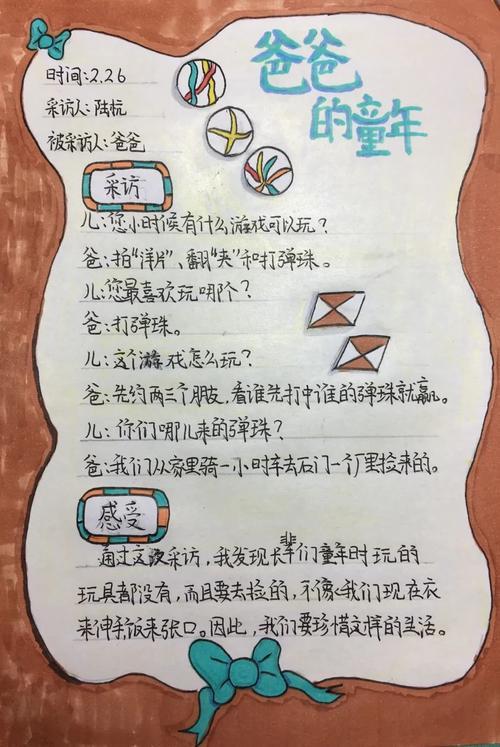 爸爸
的童年
时间:2.26
采访人:陆杭
被采访人:爸爸
采访
儿:您小时候有什么游戏可以玩?
爸:拍“洋片”、翻“夹”和打弹珠。
儿:您最喜欢玩哪个?
爸:打弹珠。
儿:这个游戏怎么玩?
爸:先约两三个朋友,看谁先打中谁的弹珠就赢。
儿:你们哪儿来的弹珠?
爸:我们从家里骑一小时车去石门一个厂里捡来的。
感受
通过这次采访,我发现长辈们童年时玩的
玩具都没有,而且要去捡的,不像我们现在衣
来伸手饭来张口。因此,我们要珍惜这样的生活。